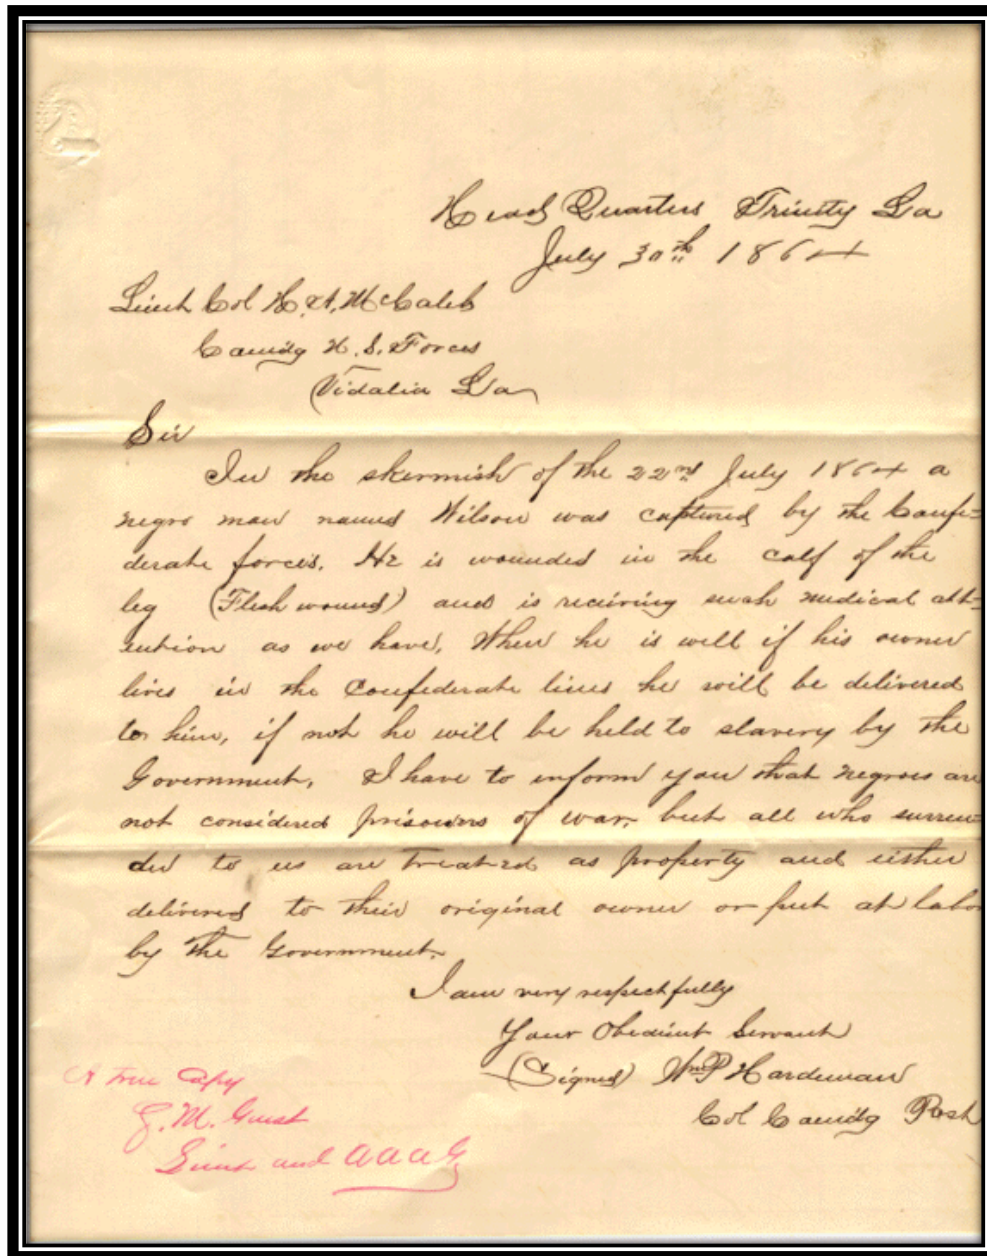 Head Quarters Trinity La
July 30th 1864
Lieut Col H. A. McCaleb
Comdg U. S. Forces
Vidalia La
Sir
In the skermish of the 22nd July 1864 a
negro man named Wilson was captured by the Confe=
derate forces. He is wounded in the calf of the
leg (Flesh wound) and is receiving such medical att=
ention as we have. When he is well if his owner
lives in the Confederate lines he will be delivered
to him, if not he will be held to slavery by the
Government. I have to inform you that negroes are
not considered prisoners of war, but all who surren=
der to us are treated as property and either
delivered to their original owner or put at labor
by the Government.
I am very respectfully
Your Obedient Servant
(Signed) Wm P Hardeman
Col Comdg Post
A true Copy
G. M. Guest
Lieut and AAAG